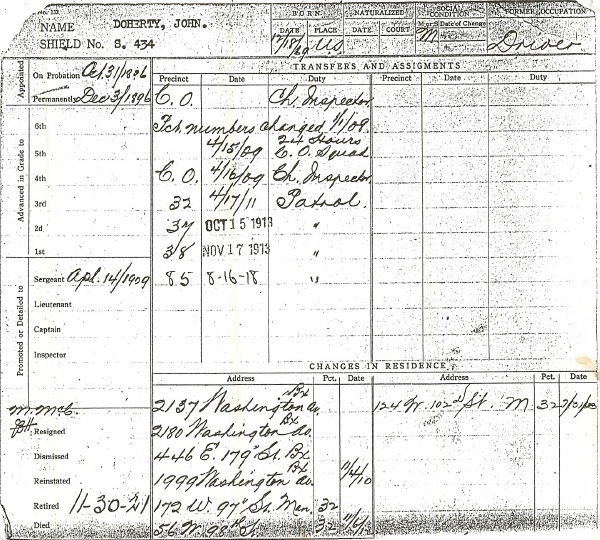 No. 132
NAME DOHERTY, JOHN.
SHIELD No. S. 434
BORN
DATE PLACE
12/18/69 US
NATURALIZED
DATE COURT
SOCIAL CONDITION
M or S Date of Change
M
FORMER OCCUPATION
Driver
Appointed
On Probation Oct. 31/1896
Permanently Dec 3/1896
TRANSFERS AND ASSIGMENTS
Precinct Date Duty Precinct Date Duty
C. O. Ch. Inspector
Pct. numbers changed 1/1/09.
4/15/09 24 Hours C. O. Squad
C. O. 4/16/09 Ch. Inspector
32 4/17/11 Patrol.
37 OCT 15 1913 "
38 NOV 17 1913 "
85 8-16-18 "
Advanced in Grade to
6th
5th
4th
3rd
2d
1st
Promoted or Detailed to
Sergeant Apl. 14/1909
Lieutenant
Captain
Inspector
CHANGES IN RESIDENCE
Address Pct. Date Address Pct. Date
2137 Washington Av. Bx
124 W. 102d St. M 32
2180 Washington Av. Bx
446 E. 179" St. Bx
1999 Washington Av. Bx 11/4/10
172 W. 97" St. Man. 32
56 W. 98th St. 32
M. McC.
Resigned
Dismissed
Reinstated
Retired 11-30-21
Died